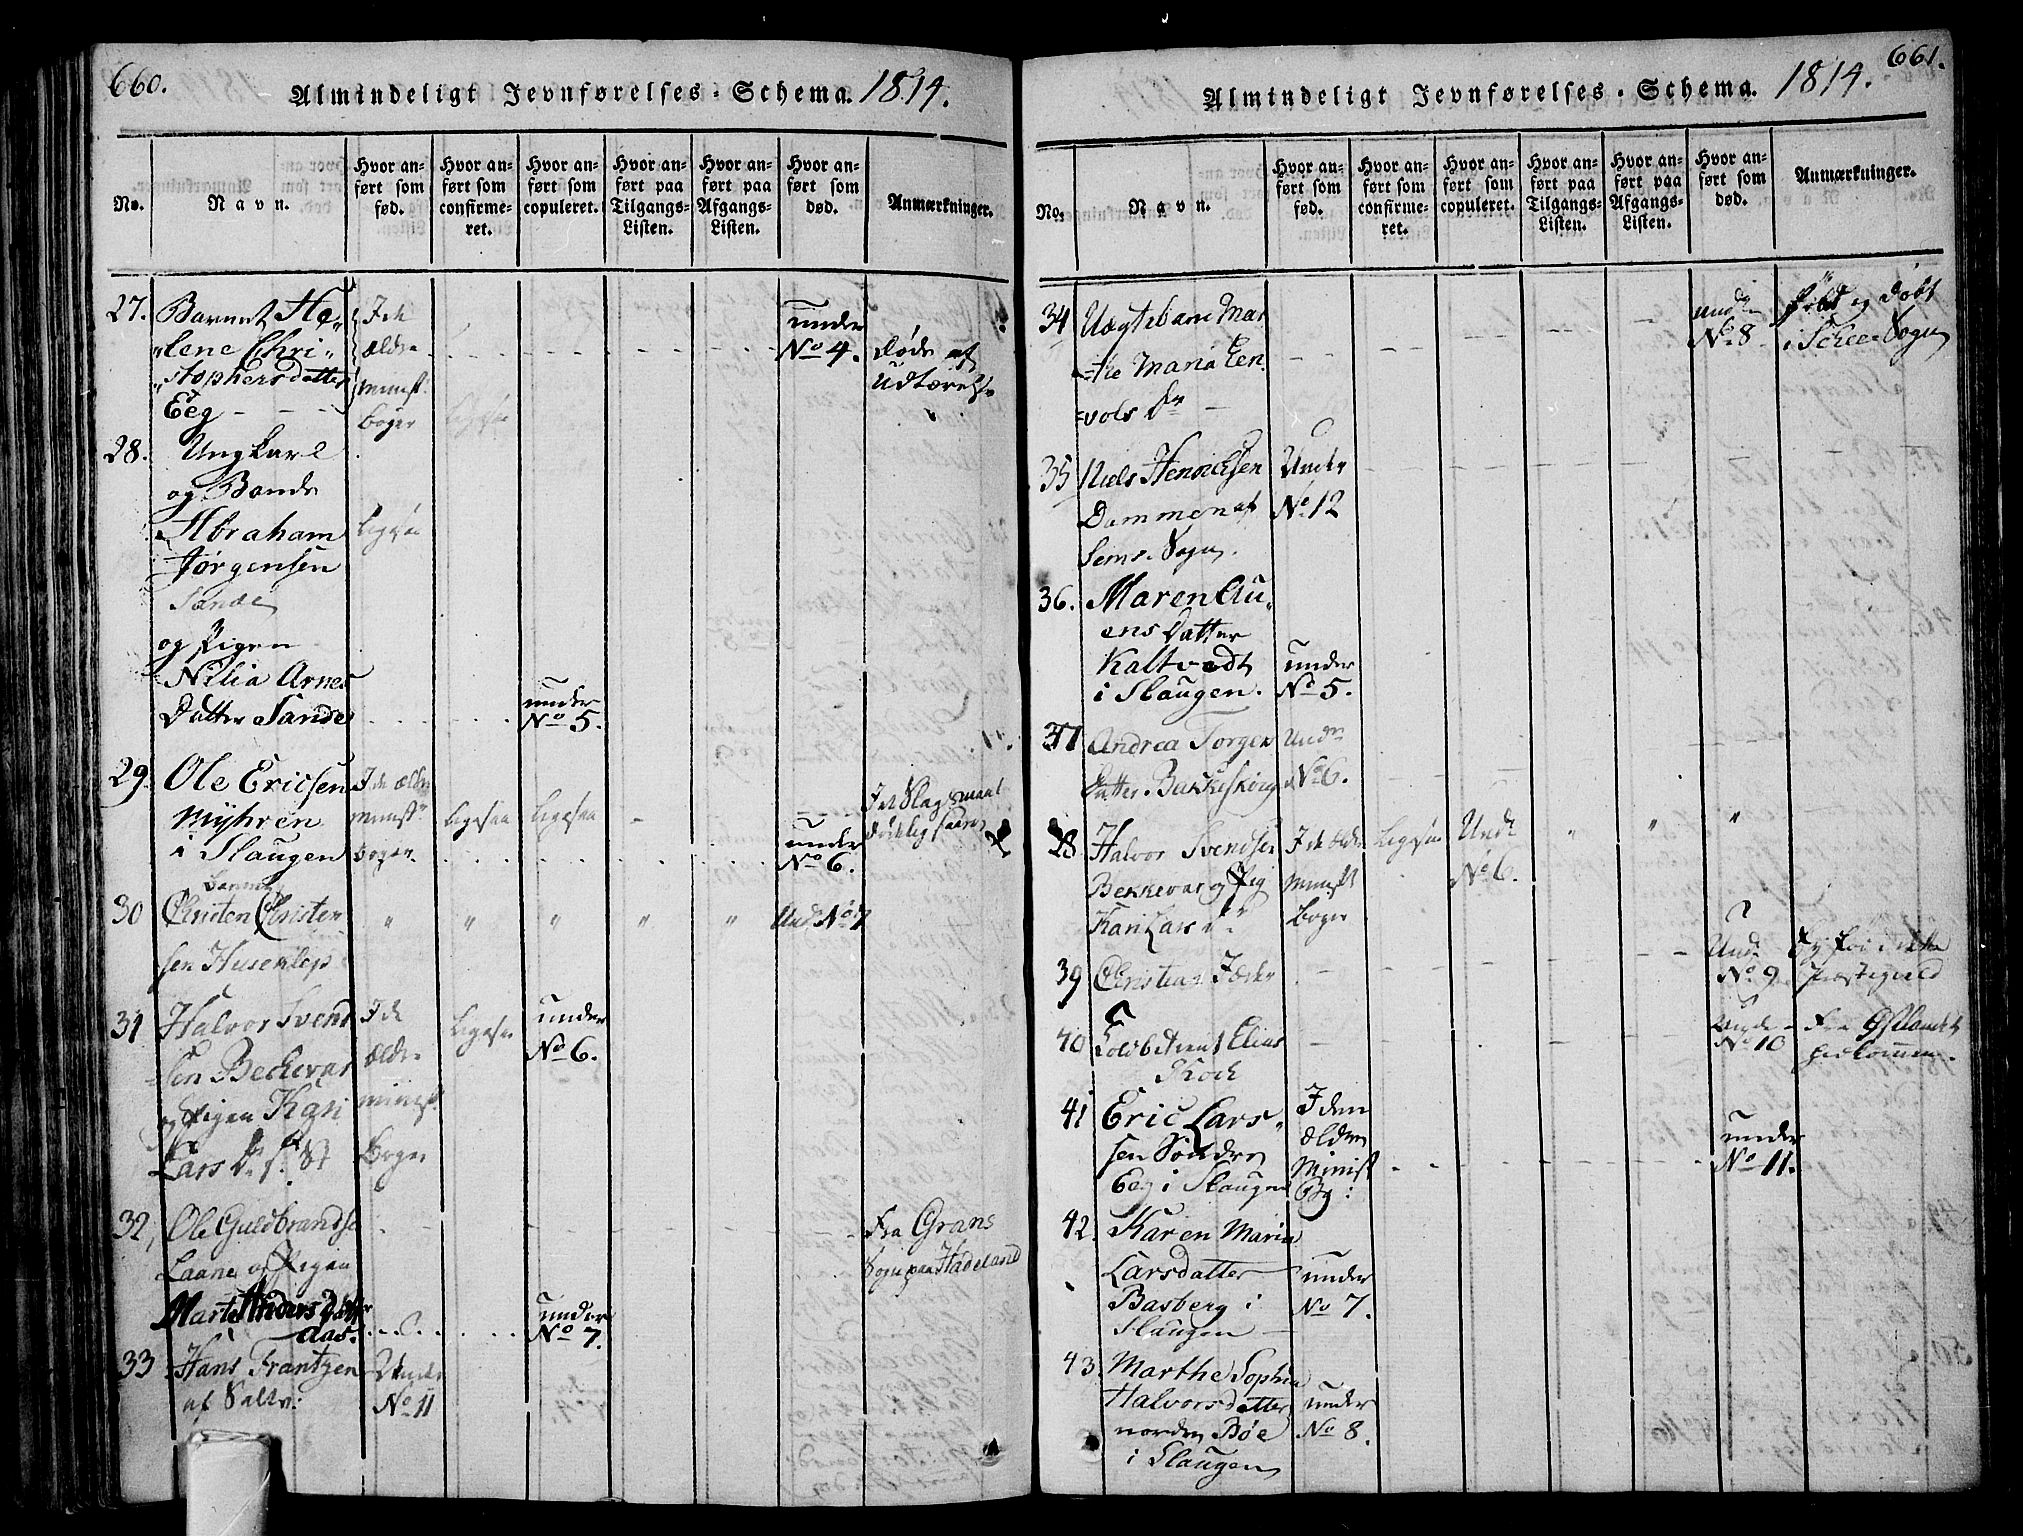 660.
Almindeligt Jevnførelses-Schema. 1814.
No.
Navn.
Hvor an-
ført som
fød.
Hvor an-
ført som
confirme-
ret.
Hvor an-
ført som
copuleret.
Hvor an-
ført paa
Tilgangs-
Listen.
Hvor an-
ført paa
Afgangs-
Listen.
Hvor an-
ført som
død.
Anmærkninger.
27. Barnet He
lene Chri
stophersdatter
Eeg
I de
ældre
minist.
bøger
under
No 4.
døde af
Udtærelse
28. Ungkarl
og Bonde
Abraham
Jørgensen
Sande
og Pigen
Nilia Arnes
Datter Sande
Ligesaa
under
No 5.
29. Ole Ericsen
Myhren
i Slaugen
I de ældre
minist
bøger
Ligesaa
Ligesaa
under
No 6.
I et Slagsmaal
30 Barnet
Christen Christen
sen Husenlep
" " " " "
Und No 7
31 Halvor Svend
sen Beckevar
og Pigen Kari
Lars Dr
I de
ældre
minist
Bøger
Ligesaa
under
No 6.
32, Ole Guldbrandse
Laane og Pigen
Marte Anders Datter
aas.
under
No 7.
Fra Grans
Sogn paa Hadeland
33 Hans Frantzen
af Saltv:
Under
No 11
661.
Almindeligt Jevnførelses-Schema. 1814.
No.
Navn.
Hvor an-
ført som
fød.
Hvor an-
ført som
confirme-
ret.
Hvor an-
ført som
copuleret.
Hvor an-
ført paa
Tilgangs-
Listen.
Hvor an-
ført paa
Afgangs-
Listen.
Hvor an-
ført som
død.
Anmærkninger.
34 Uægtebarn Mar
the Maria Een
vols Dr
under
No 8
Fød og døbt
i Schee Sogn
35 Niels Henrichsen
Dammen af
Sems Sogn.
Under
No 12
36. Maren Au
ens Datter
Kaltvedt
i Slaugen.
under
No 5.
37 Andrea Torgers
Datter Bakkeskoug
Under
No 6.
38 Halvor Svendsen
Bekkevar og Pig
Kari Lars dr
I de ældre
minist
Bøger
Ligesaa
Unde
No 6.
" " "
39 Christian
Und.
No 9
Præstegield
40 Elias
Koch
Unde
No 10
Fra Østlandet
41 Eric Lars
sen Søndre
Eeg i Slaugen
I den
ældre
Minist
Bg:
under
No 11.
42. Karen Maria
Larsdatter
Basberg i
Slaugen
under
No 7.
43. Marthe Sophia
Halvorsdatter
nordre Bøe
i Slaugen
under
No 8.